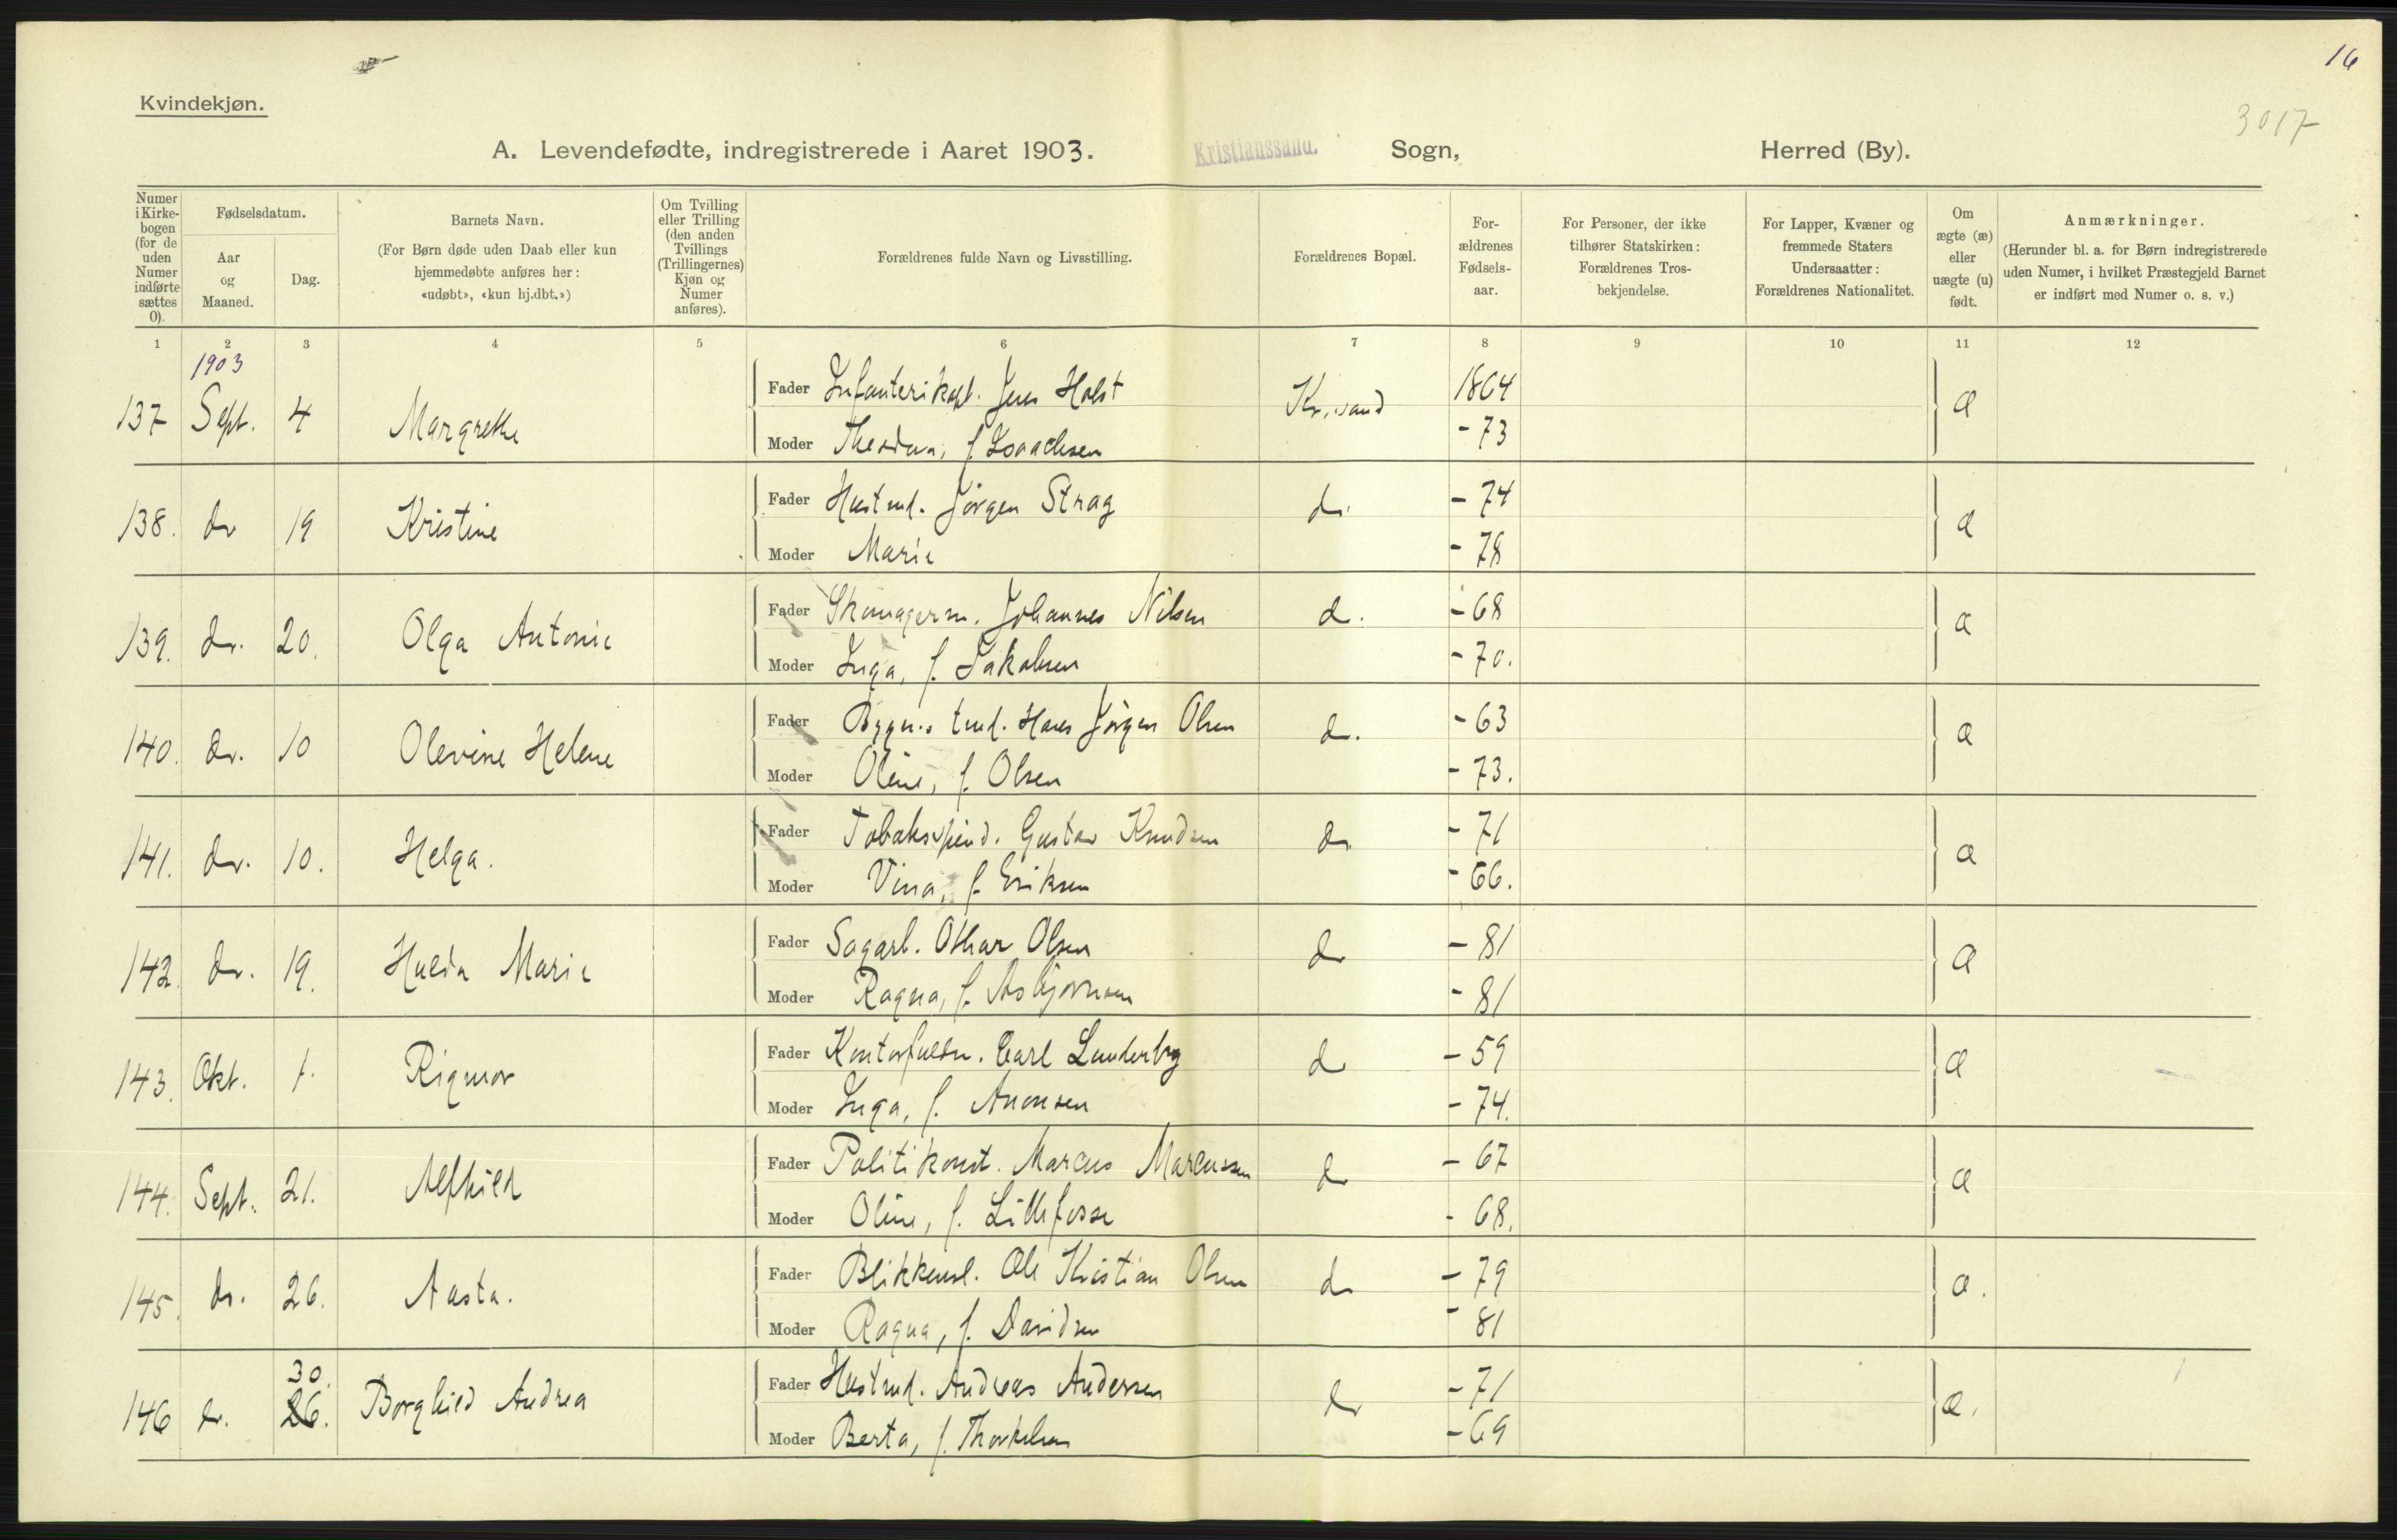 16
Kvindekjøn.
3017
A. Levendefødte, indregistrerede i Aaret 1903. Kristianssand. Sogn, Herred (By).
Numer i Kirkebogen (for de uden Numer indførte sættes 0).
Fødselsdatum.
Aar og Maaned.
Dag.
Barnets Navn.
(For Børn døde uden Daab eller kun hjemmedøbte anføres her: «udøbt», «kun hj.dbt.»)
Om Tvilling eller Trilling (den anden Tvillings (Trillingernes) Kjøn og Numer anføres).
Forældrenes fulde Navn og Livsstilling.
Forældrenes Bopæl.
Forældrenes Fødselsaar.
For Personer, der ikke tilhører Statskirken: Forældrenes Trosbekjendelse.
For Lapper, Kvæner og fremmede Staters Undersaatter: Forældrenes Nationalitet.
Om ægte (æ) eller uægte (u) født.
Anmærkninger.
(Herunder bl. a. for Børn indregistrerede uden Numer, i hvilket Præstegjeld Barnet er indført med Numer o. s. v.)
1 2 3 4 5 6 7 8 9 10 11 12
1903
137 Sept. 4 Margrethe Fader Infanterikapt. Jens Holst Kr.sand 1864 æ
Moder f. Isaachsen - 73
138. do 19 Kristine Fader Jørgen Strag do. - 74 æ
Moder Marie - 78
139. do. 20. Olga Antonie Fader Skomagerm. Johannes Nilsen do. - 68 æ
Moder Inga, f. Jakobsen - 70.
140. do. 10 Olevine Helene Fader Hans Jørgen Olsen do. - 63 æ
Moder Oline, f. Olsen - 73.
141. do. 10. Helga. Fader Tobakspind. Gustav Knudsen do - 71 æ
Moder Vina, f. Eriksen - 66.
142. do. 19. Hulda Marie Fader Sagarb. Othar Olsen do - 81 æ
Moder Ragna, f. Asbjørnsen - 81
143. Okt. 1. Rigmor Fader Kontorfuldm. Carl Lunderby do - 59 æ
Moder Inga, f. Aronsen - 74.
144. Sept. 21. Alfhild Fader Politikonst. Marcus Marcussen do - 67 æ
Moder Oline, f. Lillefosse - 68.
145. do. 26. Aasta. Fader Blikkensl. Ole Kristian Olsen do - 79 æ.
Moder Ragna, f. Davidsen - 81
30.
146 do. 26. Borghild Andrea Fader Andreas Andersen do - 71 æ.
Moder Berta, f. Thorkelsen - 69